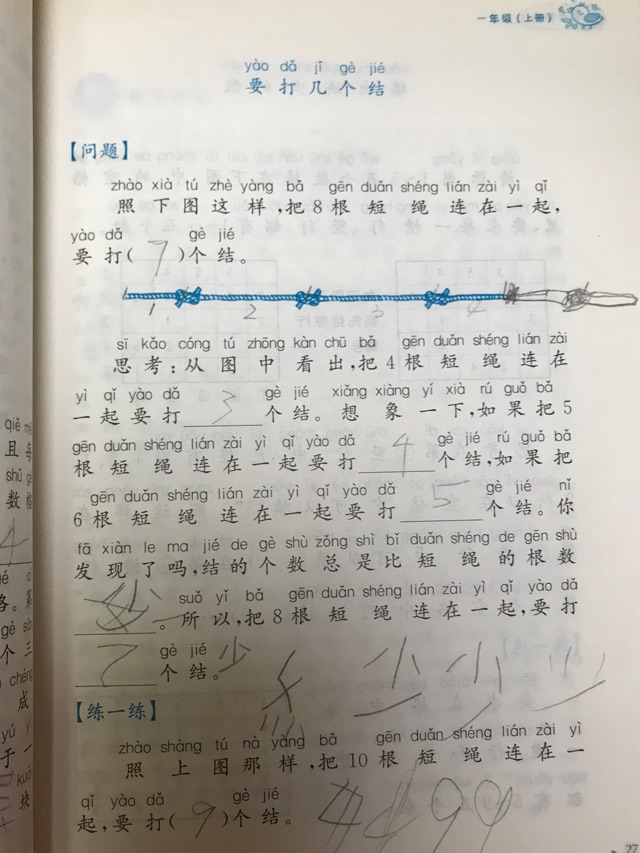 一年级（上册）
yào dǎ jǐ gè jié
要打几个结
【问题】
zhào xià tú zhè yàng bǎ gēn duǎn shéng lián zài yì qǐ
照下图这样，把8根短绳连在一起，
yào dǎ gè jié
要打（7）个结。
1 2 3 4
sī kǎo cóng tú zhōng kàn chū bǎ gēn duǎn shéng lián zài
思考：从图中看出，把4根短绳连在
yì qǐ yào dǎ gè jié xiǎng xiàng yí xià rú guǒ bǎ
一起要打3个结。想象一下，如果把5
gēn duǎn shéng lián zài yì qǐ yào dǎ gè jié rú guǒ bǎ
根短绳连在一起要打4个结，如果把
gēn duǎn shéng lián zài yì qǐ yào dǎ gè jié nǐ
6根短绳连在一起要打5个结。你
fā xiàn le ma jié de gè shù zǒng shì bǐ duǎn shéng de gēn shù
发现了吗，结的个数总是比短绳的根数
suǒ yǐ bǎ gēn duǎn shéng lián zài yì qǐ yào dǎ
少。所以，把8根短绳连在一起，要打
gè jié
7个结。少
【练一练】
zhào shàng tú nà yàng bǎ gēn duǎn shéng lián zài yì
照上图那样，把10根短绳连在一
qǐ yào dǎ gè jié
起，要打（9）个结。
27